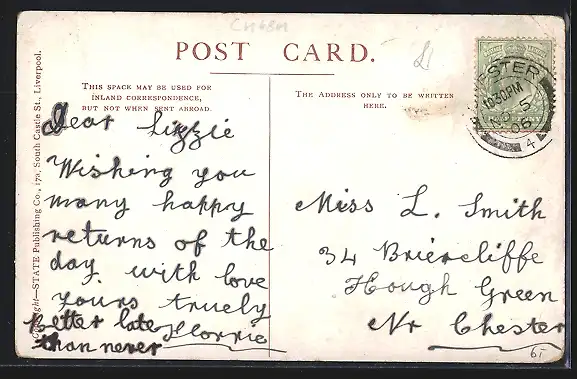 POST CARD.
THIS SPACE MAY BE USED FOR
INLAND CORRESPONDENCE,
BUT NOT WHEN SENT ABROAD.
THE ADDRESS ONLY TO BE WRITTEN
HERE.
STATE Publishing Co., 17a, South Castle St., Liverpool.
Dear Lizzie
Wishing you
many happy
returns of the
day with love
yours truely
Florrie
Better late
than never
Miss L. Smith
34 Briercliffe
Hough Green
Nr Chester
CHESTER
10 30PM
5
06
4
6/-